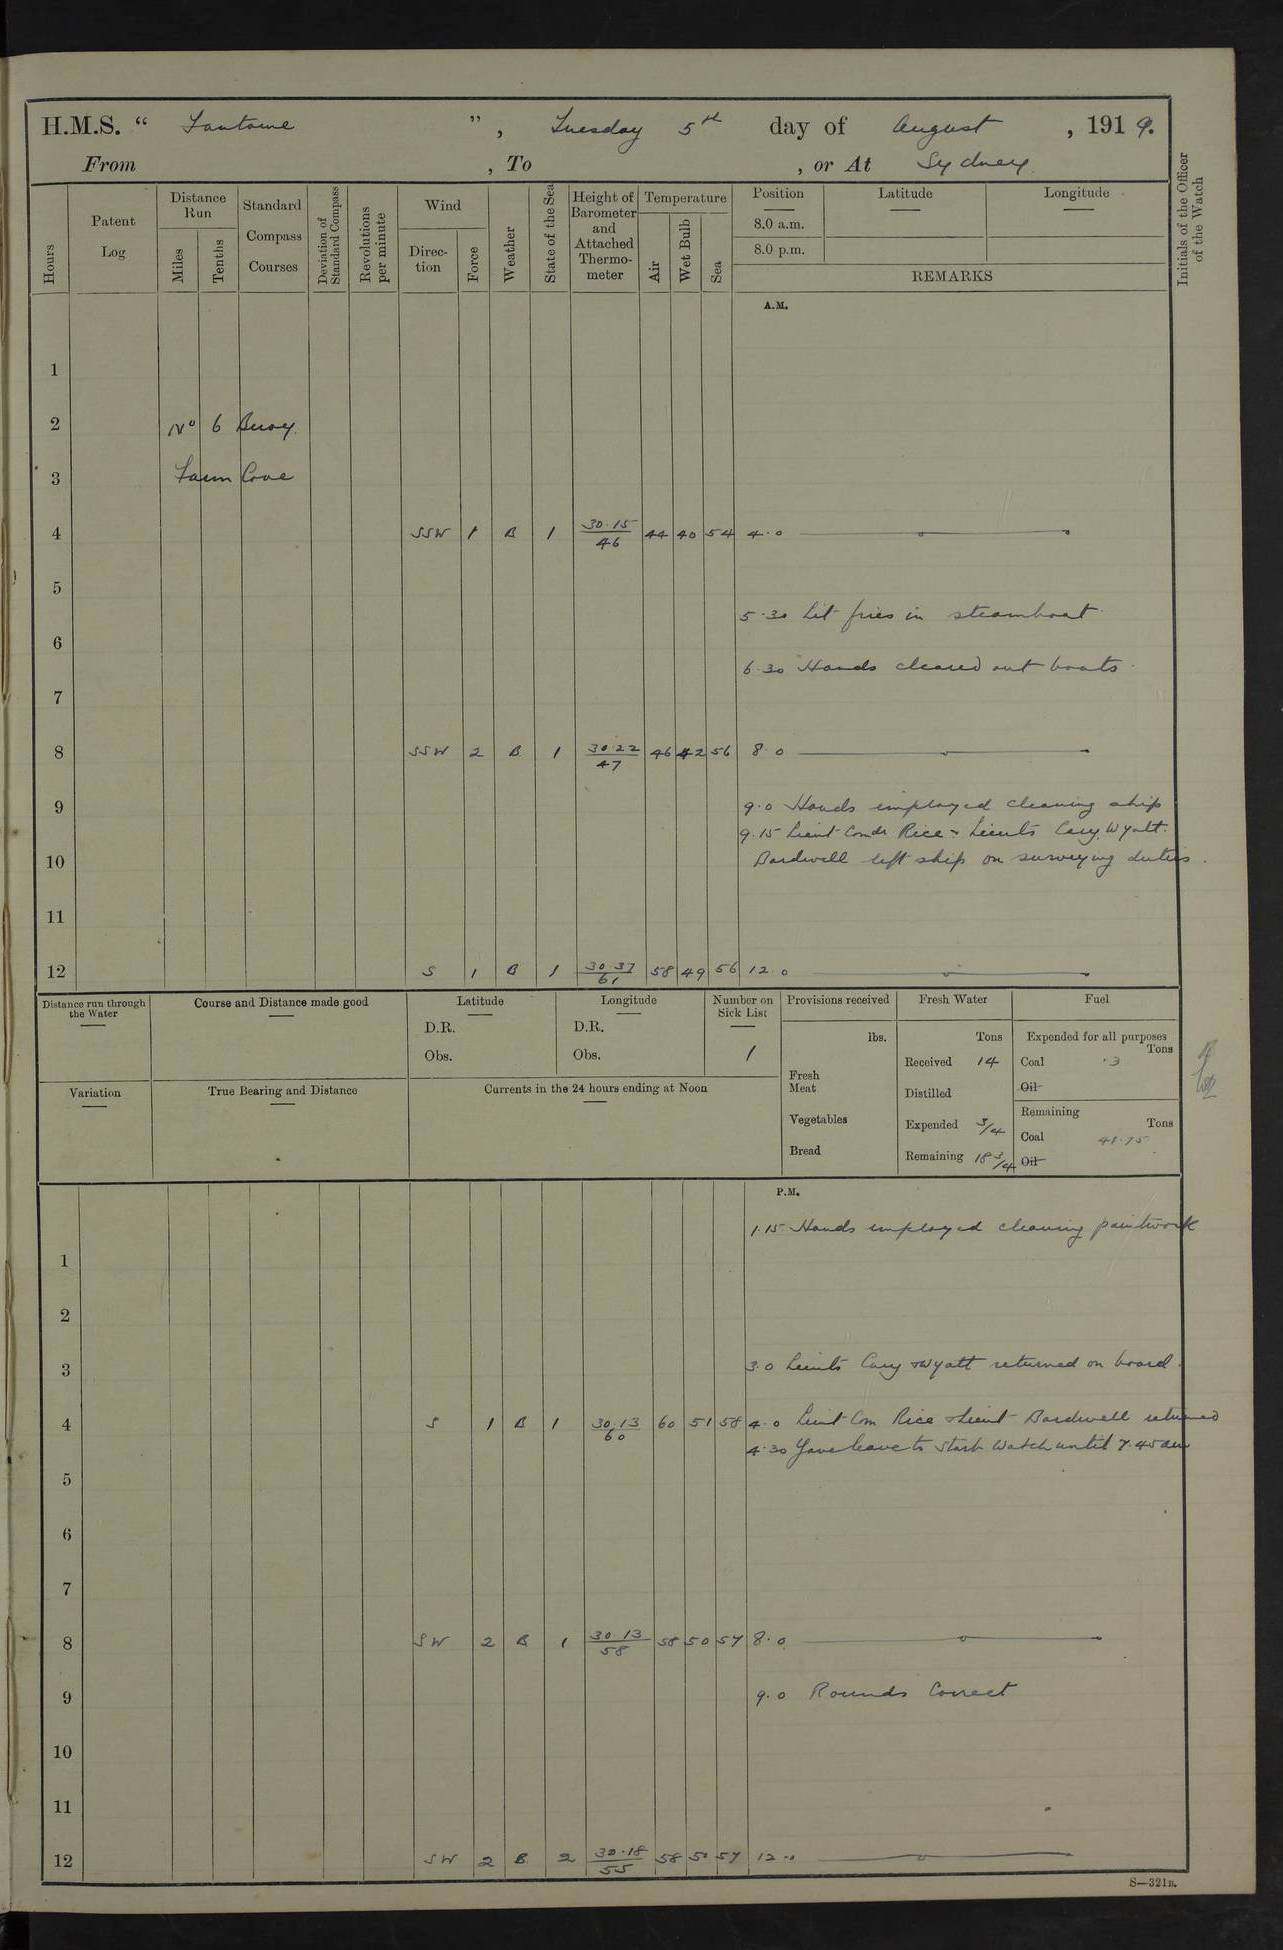 H.M.S. “ Fantome ” , Tuesday 5th day of August , 1919.
From , To , or At Sydney
Hours
Patent Log
Distance Run
Miles
Tenths
Standard Compass Courses
Deviation of Standard Compass
Revolutions per minute
Wind
Direction
Force
Weather
State of the Sea
Height of Barometer and Attached Thermometer
Temperature
Air
Wet Bulb
Sea
Position
8.0 a.m.
8.0 p.m.
Latitude
Longitude
REMARKS
Initials of the Officer of the Watch
A.M.
1
2 No 6 Buoy
3 Farm Cove
4 SSW 1 B 1 30.15 / 46 44 40 54 4.0
5
5.30 Lit fires in steamboat
6
6.30 Hands cleared out boats
7
8 SSW 2 B 1 30.22 / 47 46 42 56 8.0
9 9.0 Hands employed cleaning ship
9.15 Lieut Comdr Rice & Lieuts Cary, Wyatt.
10 Bardwell left ship on surveying duties.
11
12 S 1 B 1 30.37 / 61 58 49 56 12.0
Distance run through the Water
Course and Distance made good
Latitude
D.R.
Obs.
Longitude
D.R.
Obs.
Number on Sick List
1
Provisions received
lbs.
Fresh Meat
Vegetables
Bread
Fresh Water
Tons
Received 14
Distilled
Expended 3/4
Remaining 18 3/4
Fuel
Expended for all purposes
Tons
Coal .3
Oil
Remaining
Tons
Coal 41.75
Oil
Variation
True Bearing and Distance
Currents in the 24 hours ending at Noon
P.M.
1.15 Hands employed cleaning paintwork
1
2
3 3.0 Lieuts Cary & Wyatt returned on board.
4 S 1 B 1 30.13 / 60 60 51 58 4.0 Lieut Com Rice & Lieut Bardwell returned
4.30 Gave leave to Starb Watch until 7.45 am
5
6
7
8 SW 2 B 1 30.13 / 58 58 50 57 8.0
9 9.0 Rounds Correct
10
11
12 SW 2 B 2 30.18 / 55 58 50 57 12.0
S—321B.